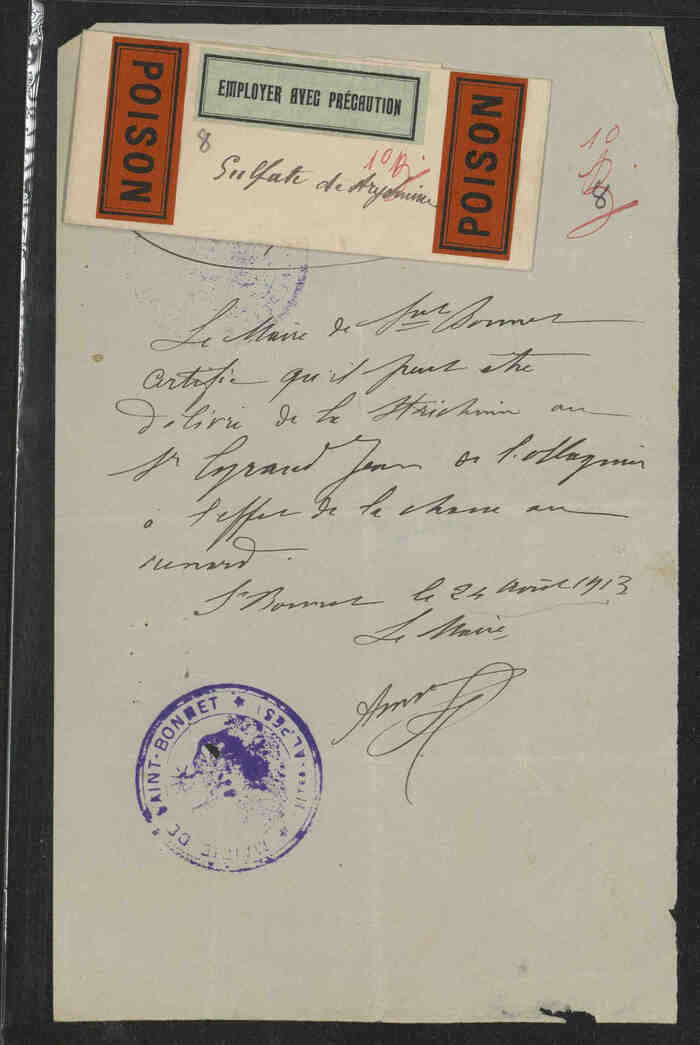 POISON
EMPLOYER AVEC PRÉCAUTION
POISON
8
10
Sulfate de
10
8
Le Maire de Snt Bonnet
certifie qu'il peut être
délivré de la strichnine au
Sr Jean de
à l'effet de la chasse au
renard.
St Bonnet le 24 Août 1913
Le Maire,
MAIRIE DE SAINT-BONNET ★ ALPES) ★